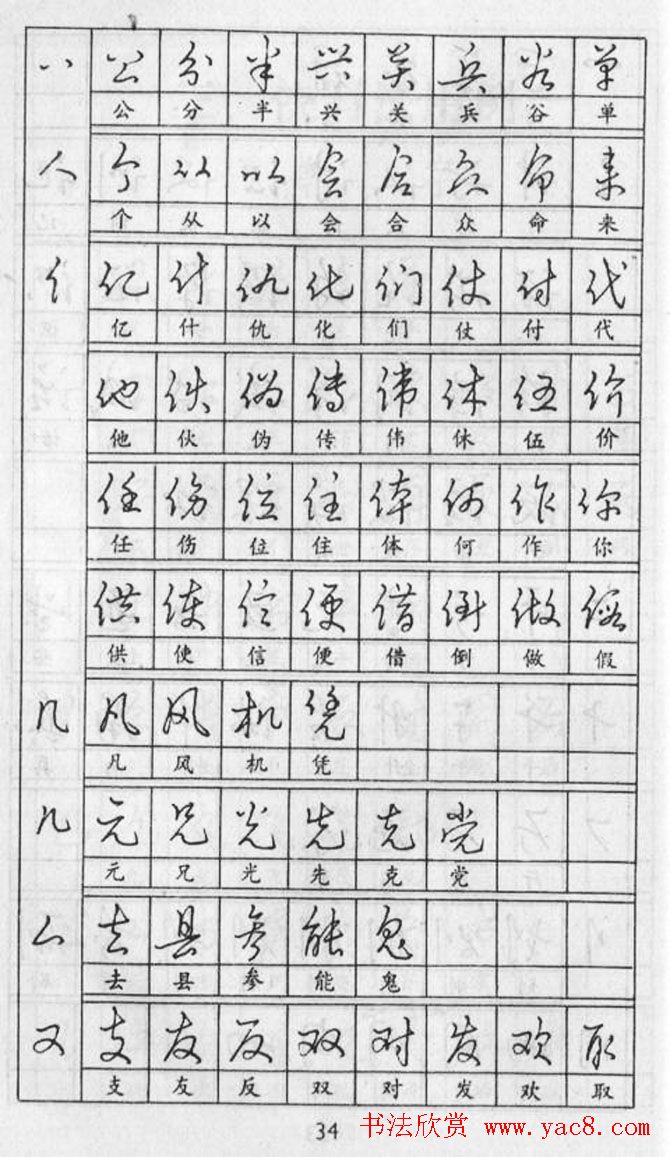 八 公 分 半 兴 关 兵 谷 单
公 分 半 兴 关 兵 谷 单
人 个 从 以 会 合 众 命 来
个 从 以 会 合 众 命 来
亻 亿 什 仇 化 们 仗 付 代
亿 什 仇 化 们 仗 付 代
他 伙 伪 传 伟 休 伍 价
他 伙 伪 传 伟 休 伍 价
任 伤 位 住 体 何 作 你
任 伤 位 住 体 何 作 你
供 使 信 便 借 倒 做 假
供 使 信 便 借 倒 做 假
几 凡 风 机 凭
凡 风 机 凭
儿 元 兄 光 先 克 党
元 兄 光 先 克 党
厶 去 县 参 能 鬼
去 县 参 能 鬼
又 支 友 反 双 对 发 欢 取
支 友 反 双 对 发 欢 取
34 书法欣赏 www.yac8.com